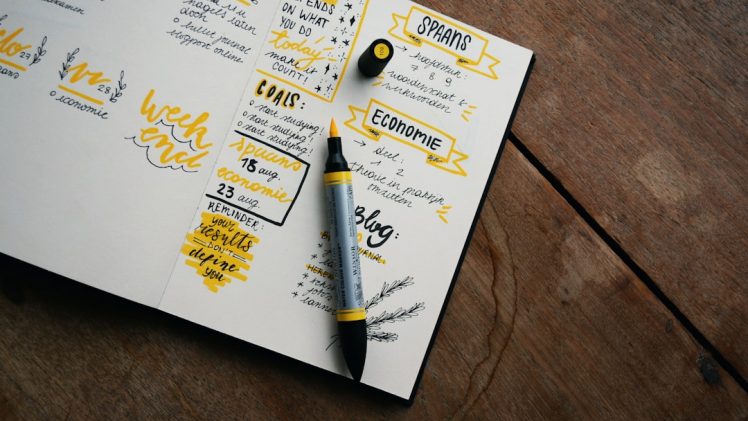 nagels laten
doen
o bullet journal
support online
29
vr
28
o economie
week
end
ON WHAT
YOU DO
today
make it
COUNT!
GOALS:
o start studying!
o start studying!
o start studying!
spaans
18 aug.
economie
23 aug.
REMINDER:
your
results
DON'T
define
you
SPAANS
→ hoofdstuk:
7 8 9
woordenschat &
werkwoorden
ECONOMIE
→ deel:
1 2
theorie in
omzetten
Blog: